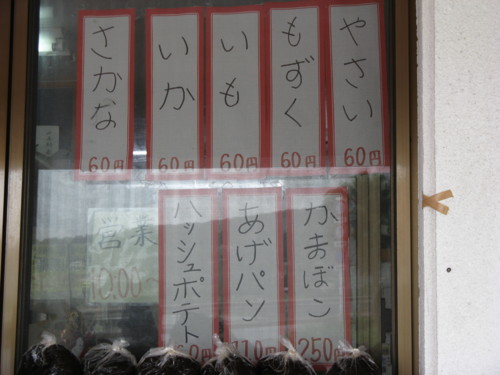 やさい
60円
もずく
60円
いも
60円
いか
60円
さかな
60円
かまぼこ
250円
あげパン
110円
ハッシュポテト
営業
10:00~